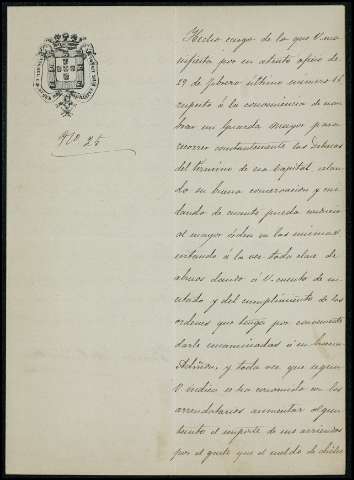 Nº 25
Hecho cargo de lo que V. ma
nifiesta por su atento oficio de
29 de febrero último número 16
respecto á la conveniencia de nom
brar un Guarda mayor para
recorrer constantemente las Dehesas
del termino de esa Capital, celan
do su buena conservacion y cui
dando de cuanto pueda
al mayor orden en las mismas
evitando á la vez toda clase de
abusos dando á V. cuenta de su
estado y del cumplimiento de las
ordenes que tenga por conveniente
darle encaminadas á su buena
y toda vez que segun
V. indica se ha convenido con los
arrendatarios aumentar algun
tanto el importe de sus arriendos
por el gasto que el sueldo de dicho